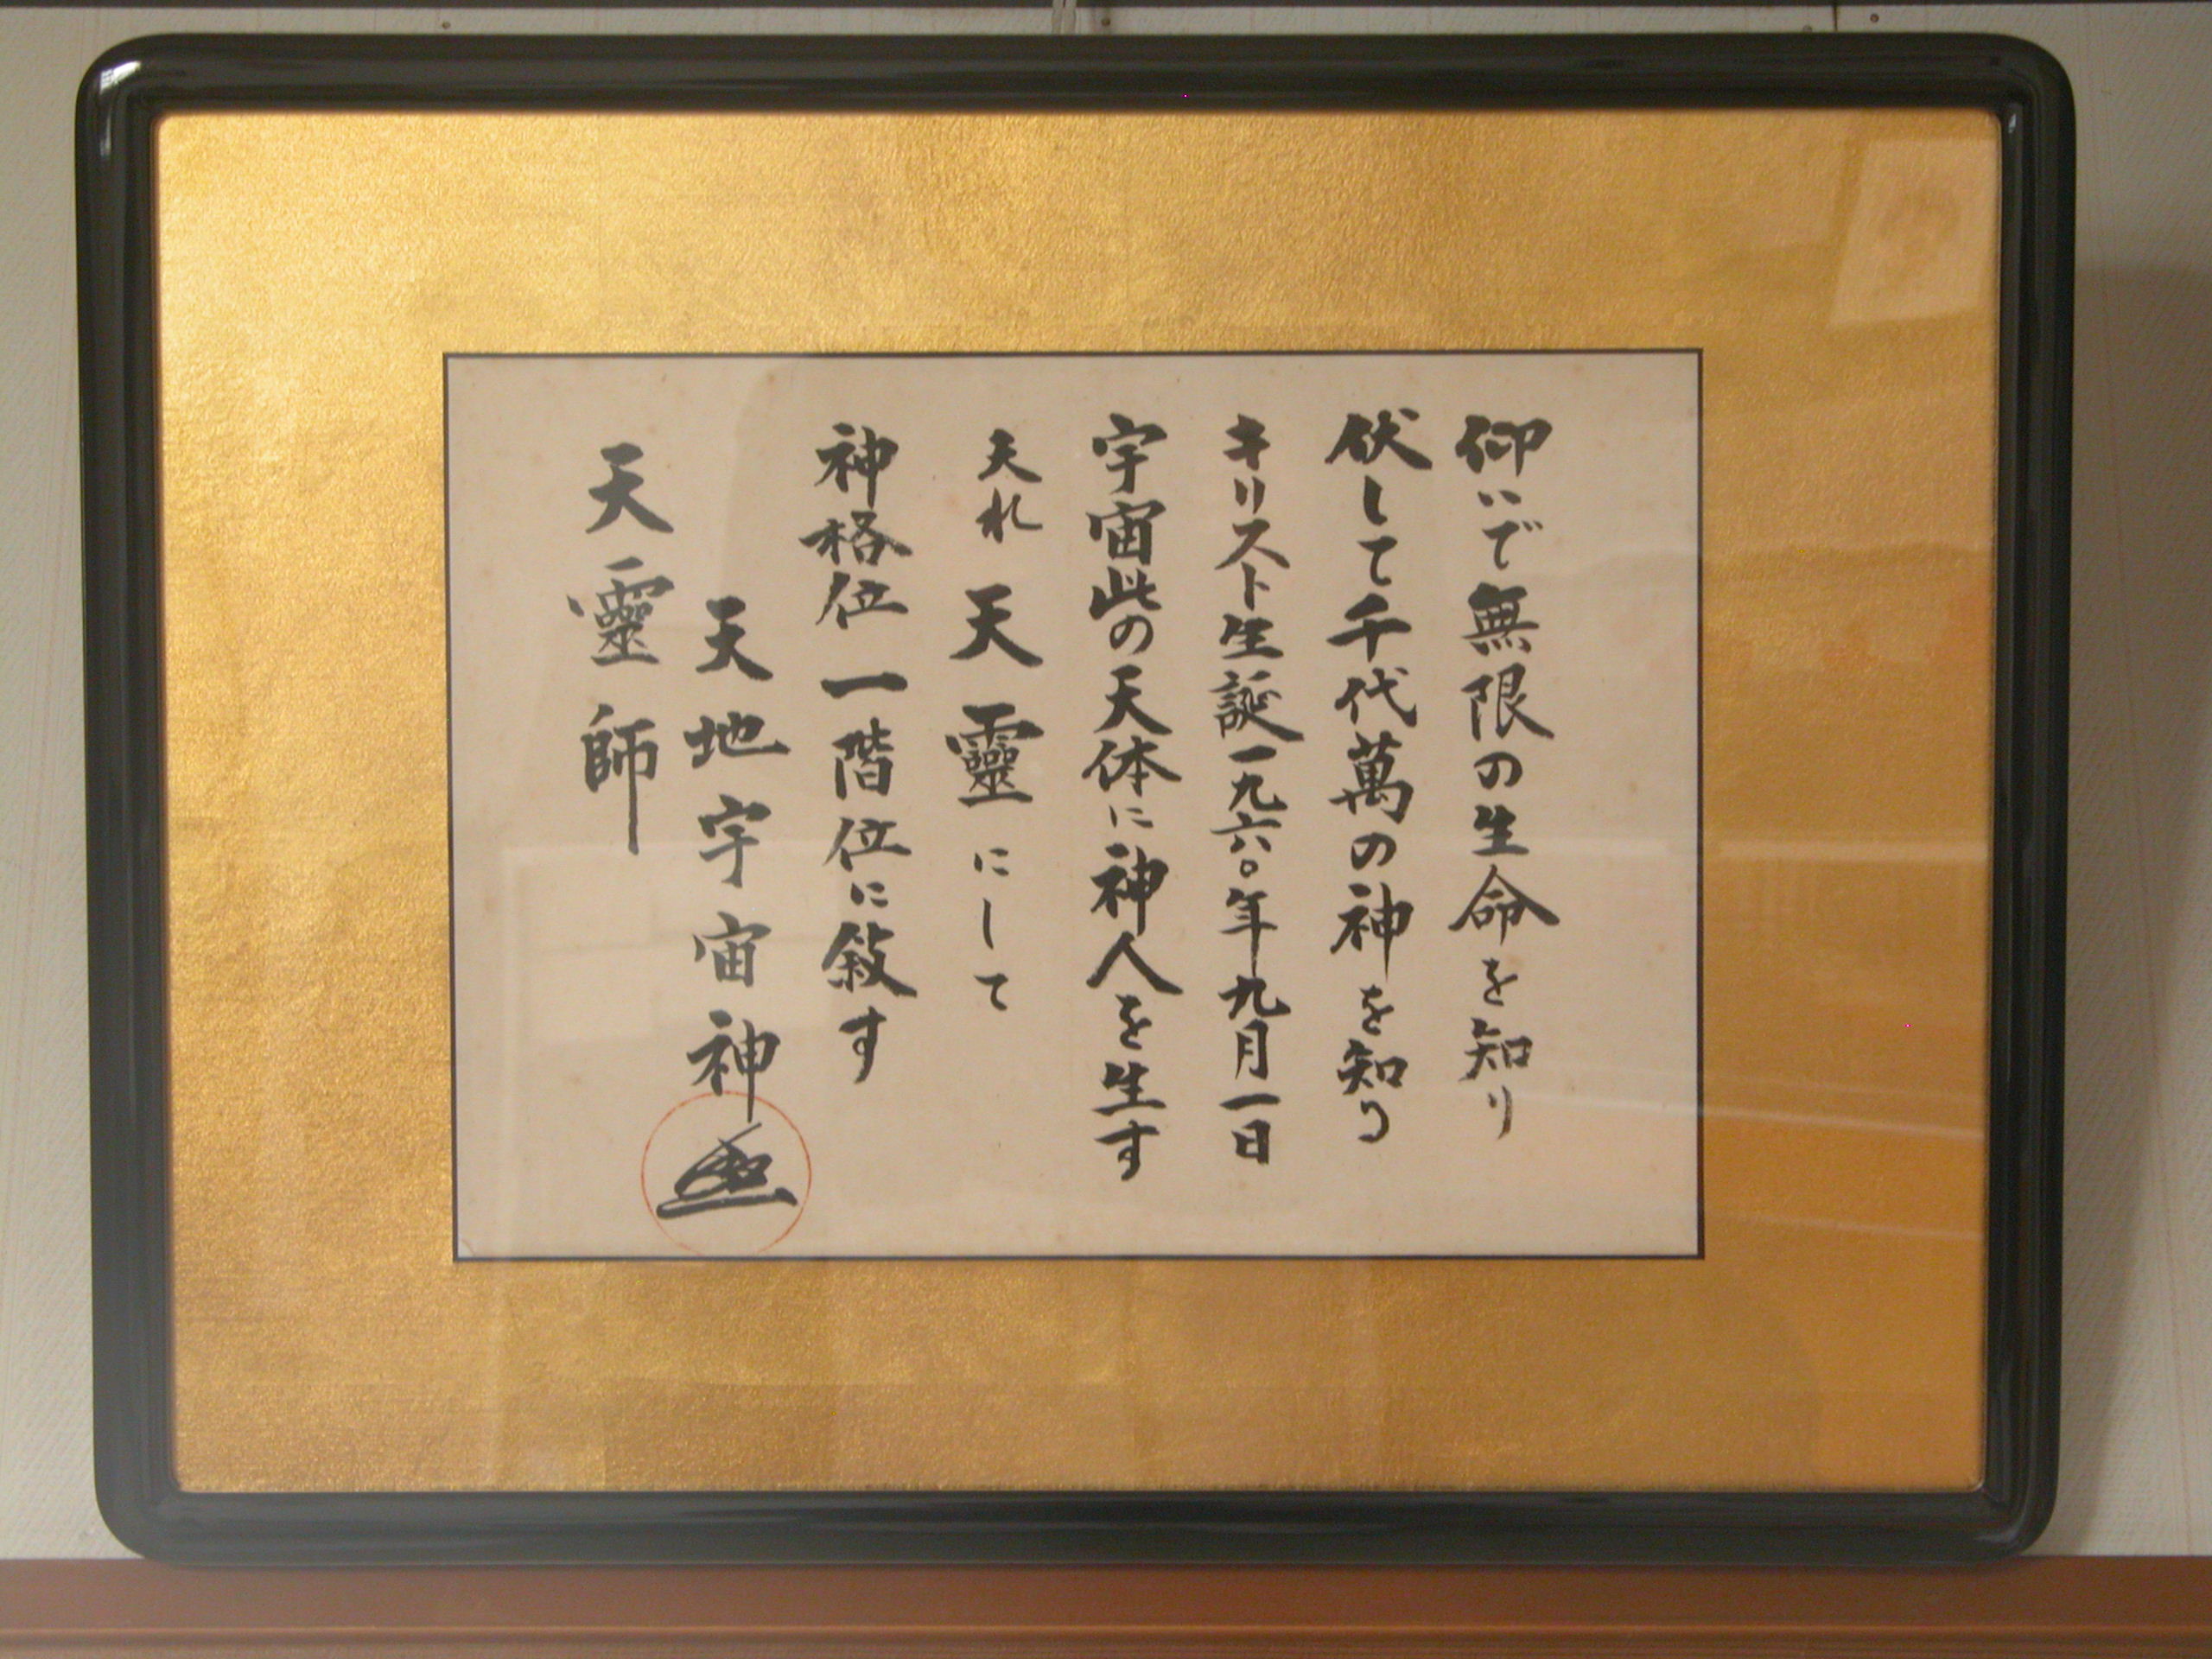 仰いで無限の生命を知り
伏して千代萬の神を知る
キリスト生誕一九六〇年九月一日
宇宙此の天体に神人を生す
夫れ 天靈にして
神格位一階位に敍す
天地宇宙神
天靈師